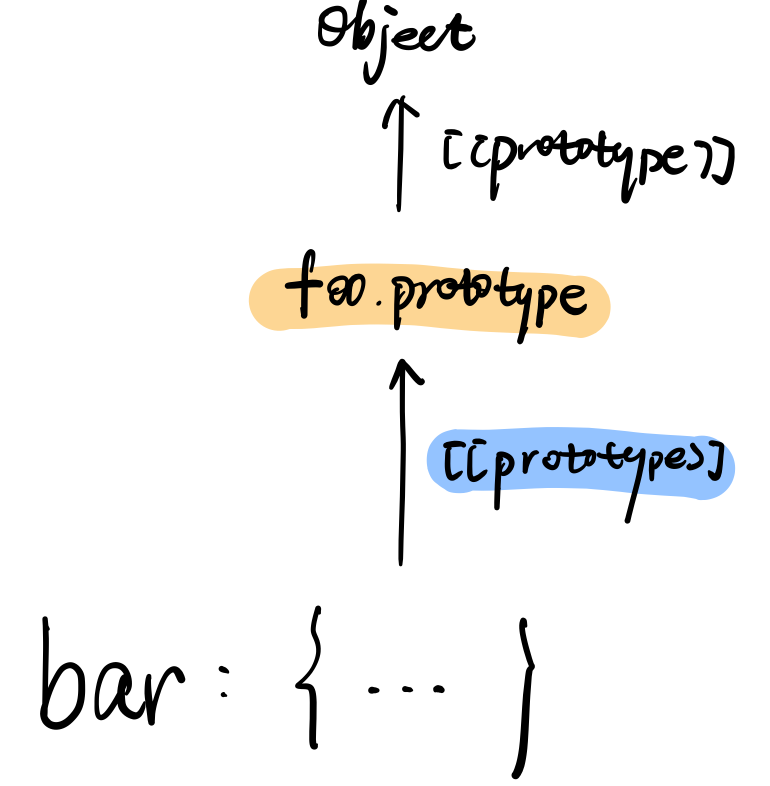 Object
[[prototype]]
foo.prototype
[[prototype]]
bar : { ... }